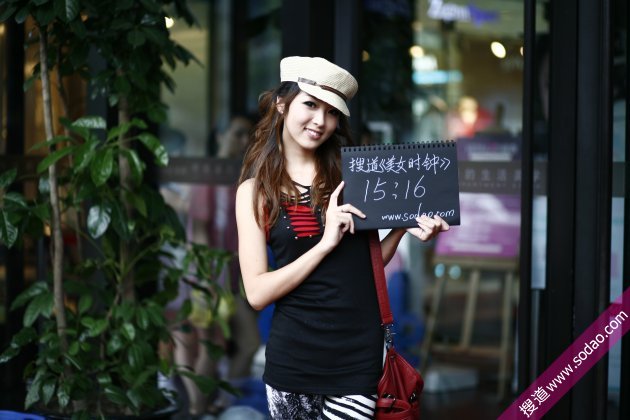 搜道《美女时钟》
15:16
www.sodao.com
的生活
搜道 www.sodao.com